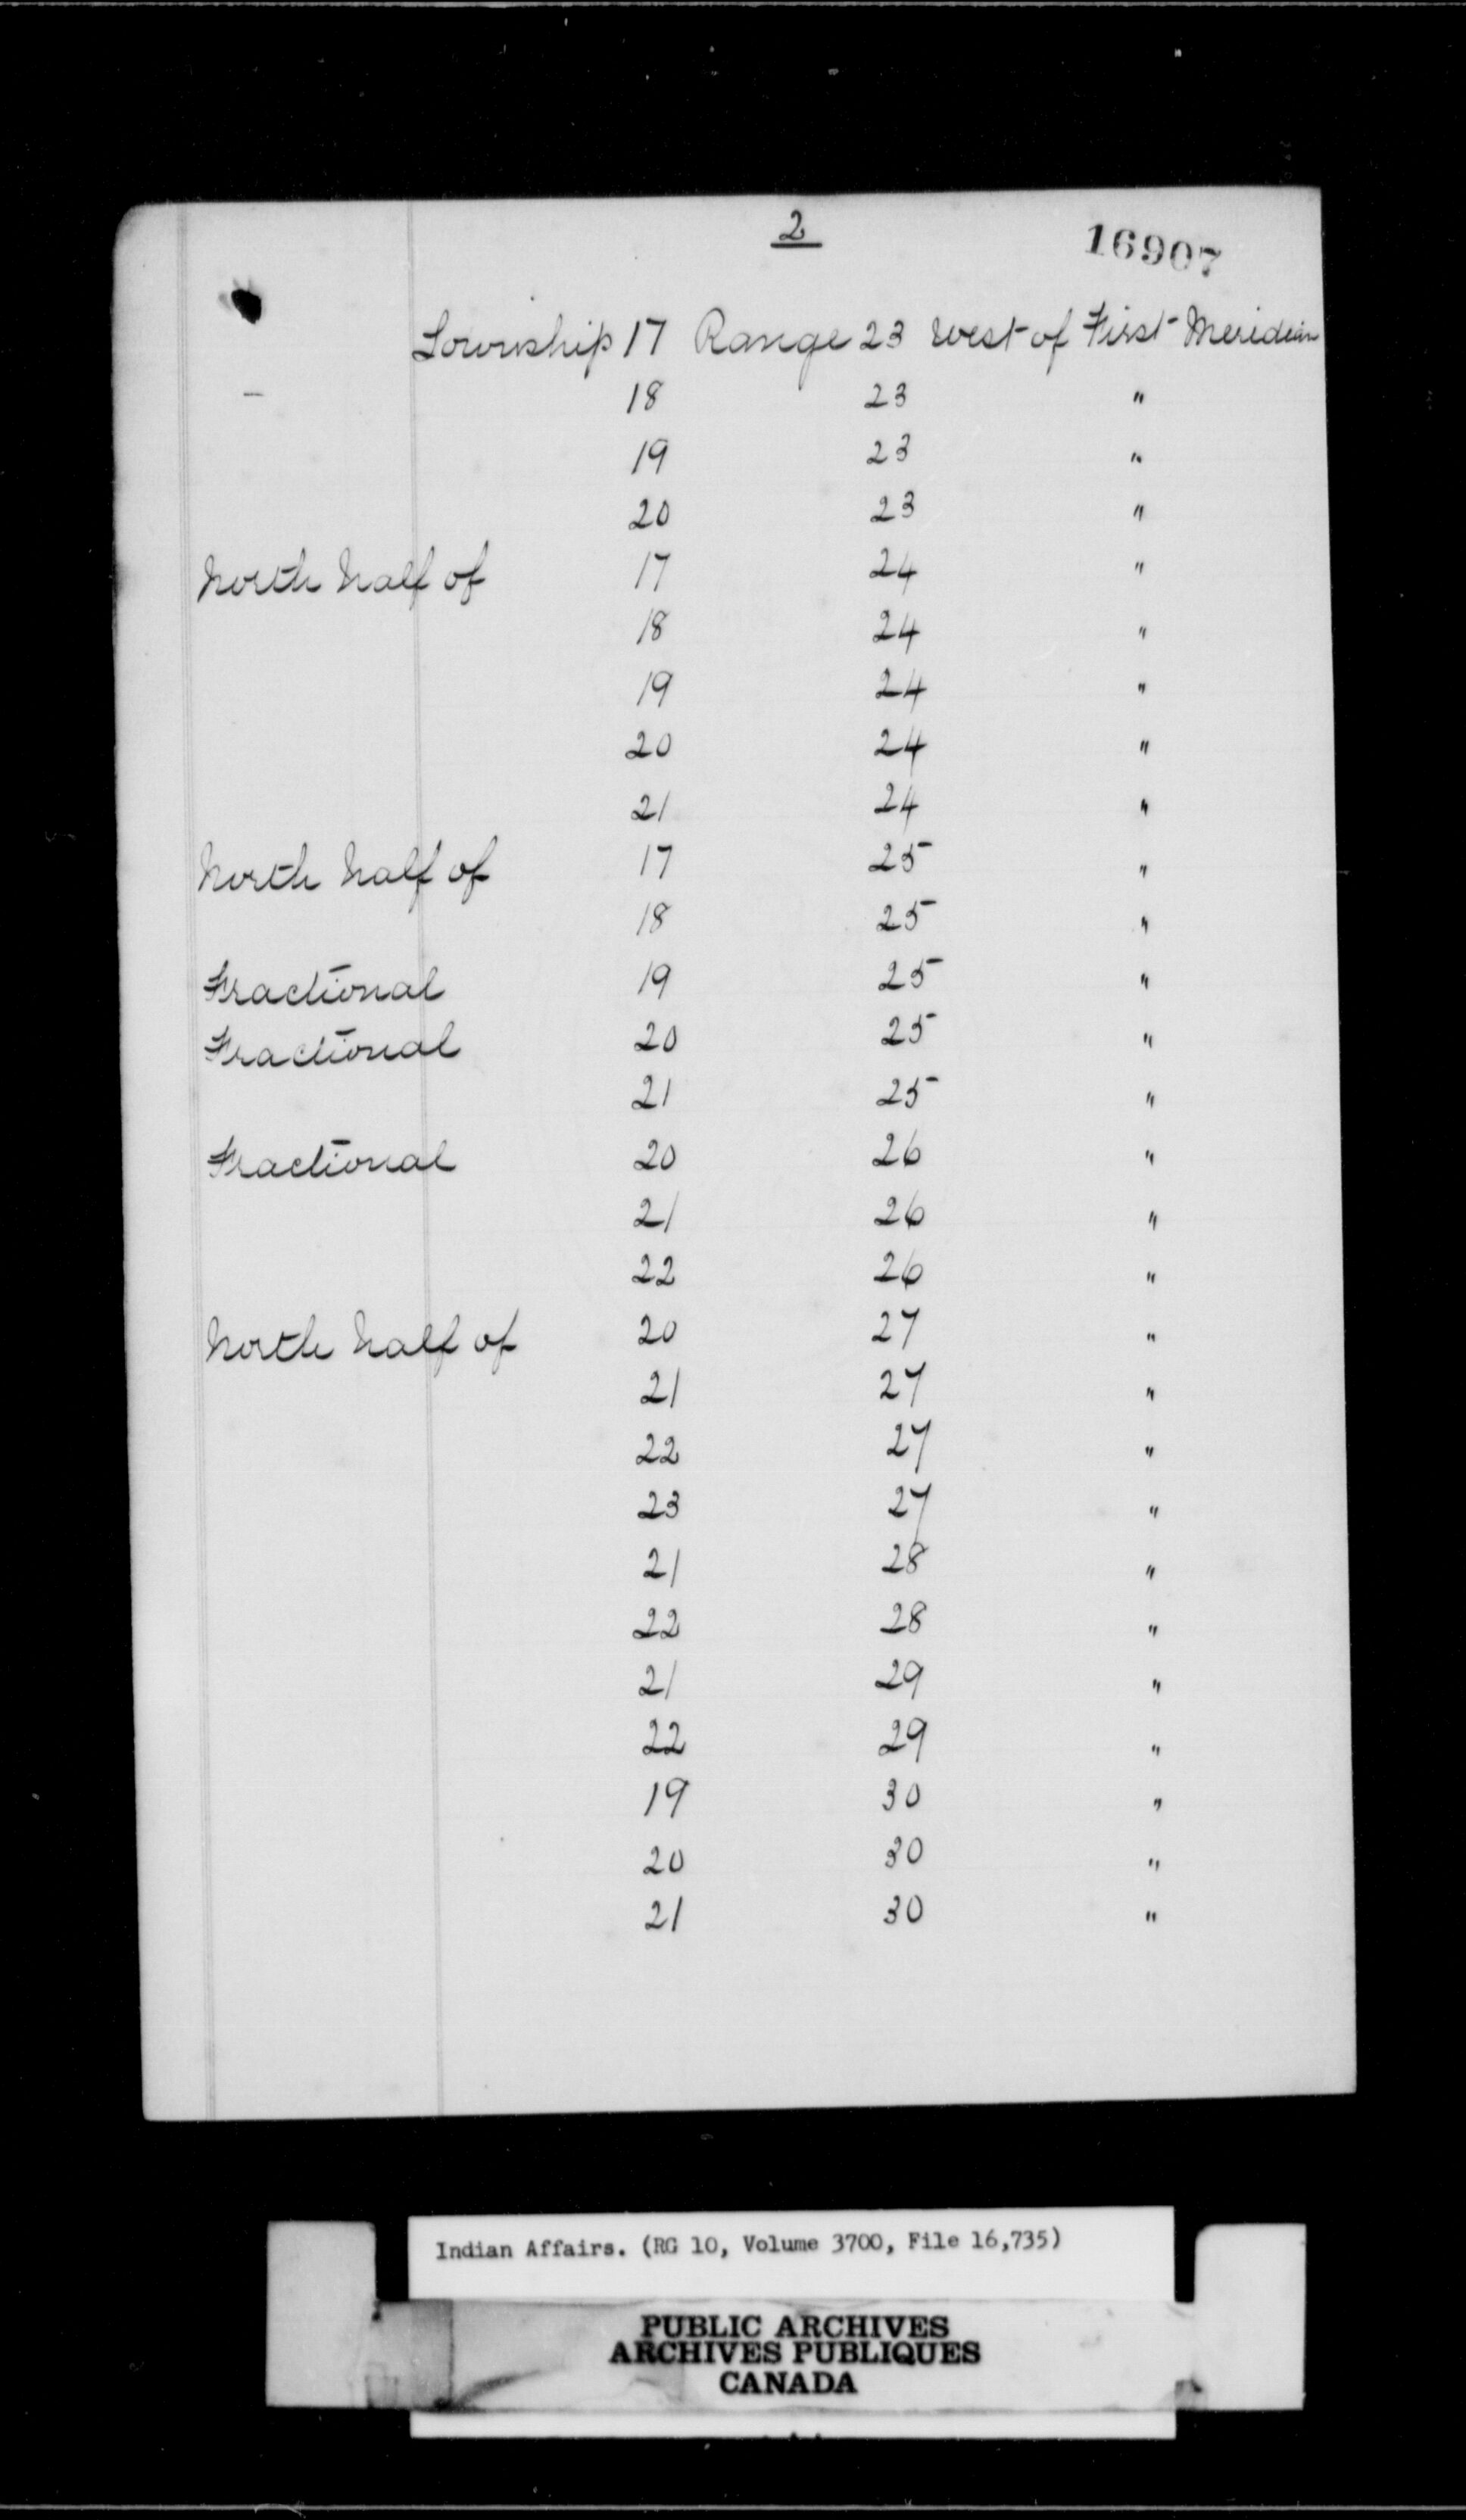 2
16907
Township 17 Range 23 West of First Meridian
— 18 23 "
19 23 "
20 23 "
North half of 17 24 "
18 24 "
19 24 "
20 24 "
21 24 "
North half of 17 25 "
18 25 "
Fractional 19 25 "
Fractional 20 25 "
21 25 "
Fractional 20 26 "
21 26 "
22 26 "
North half of 20 27 "
21 27 "
22 27 "
23 27 "
21 28 "
22 28 "
21 29 "
22 29 "
19 30 "
20 30 "
21 30 "
Indian Affairs. (RG 10, Volume 3700, File 16,735)
PUBLIC ARCHIVES
ARCHIVES PUBLIQUES
CANADA